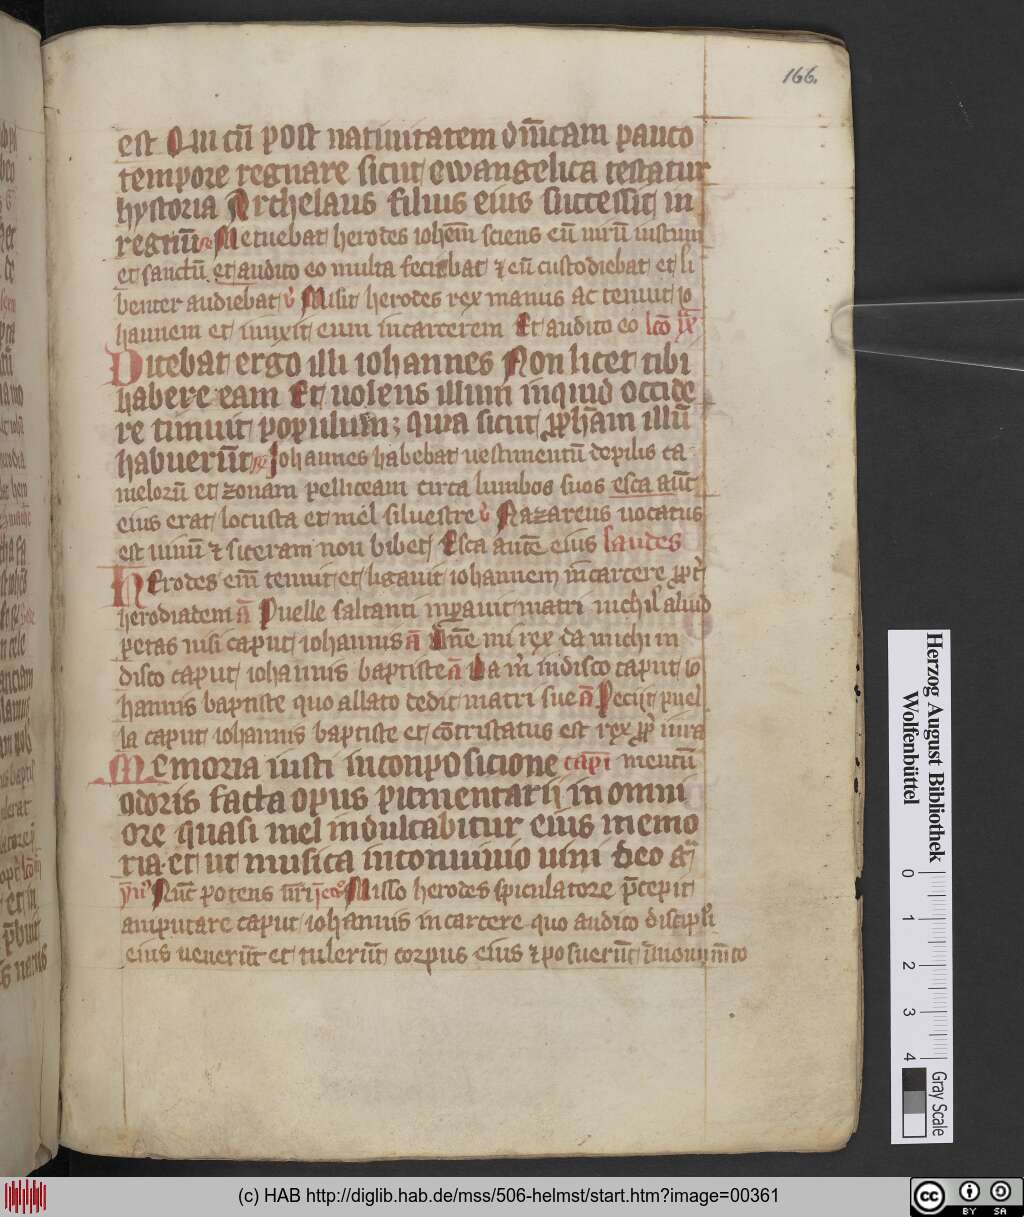 166.
est Qui cū post natiuitatem dn̄icam pauco
tempore regnare sicut ewangelica testatur
hystoria Archelaus filius eius successit in
regnū Metuebat herodes ioħem sciens eū uirū iustum
et sanctū et audito eo multa faciebat ⁊ eū custodiebat et li
benter audiebat v̓ Misit herodes rex manus ac tenuit io
hannem et iunxit eum incarcerem Et audito eo lcō ix
Dicebat ergo illi iohannes Non licet tibi
habere eam Et uolens illum inquid occide
re timuit populum; quia sicut ꝓpħam illū
habuerūt Johannes habebat uestimentū depilis ca
melorū et zonam pelliceam circa lumbos suos esca aūt
eius erat locusta et mel siluestre v̓ Nazareus uocatus
est uinū ⁊ siceram non bibet Esca aute eius laudes
Herodes eni tenuit et ligauit iohannem in carcere ꝓpt̓
herodiadem a̅ Puelle saltanti inꝑauit matri nichil aliud
petas nisi caput iohannis a̅ Dn̄e mi rex da michi in
disco caput iohannis baptiste a̅ Da m̓ indisco caput io
hannis baptiste quo allato dedit matri sue a̅ Peciit puel
la caput iohannis baptiste et cōtristatus est rex ꝓp̓ iura
Memoria iusti inconposicione capi mentū
odoris facta opus picmentarii in omni
ore quasi mel indulcabitur eius memo
ria et ut musica inconuiuio uini deo gr̄
Nūc potens Misso herodes spiculatore p̄cepit
amputare caput iohannis in carcere quo audito discipłi
eius uenerūt et tulerūt corpus eius ⁊ posuerūt
Herzog August Bibliothek
Wolfenbüttel
0 1 2 3 4
Gray Scale
(c) HAB http://diglib.hab.de/mss/506-helmst/start.htm?image=00361
cc BY SA